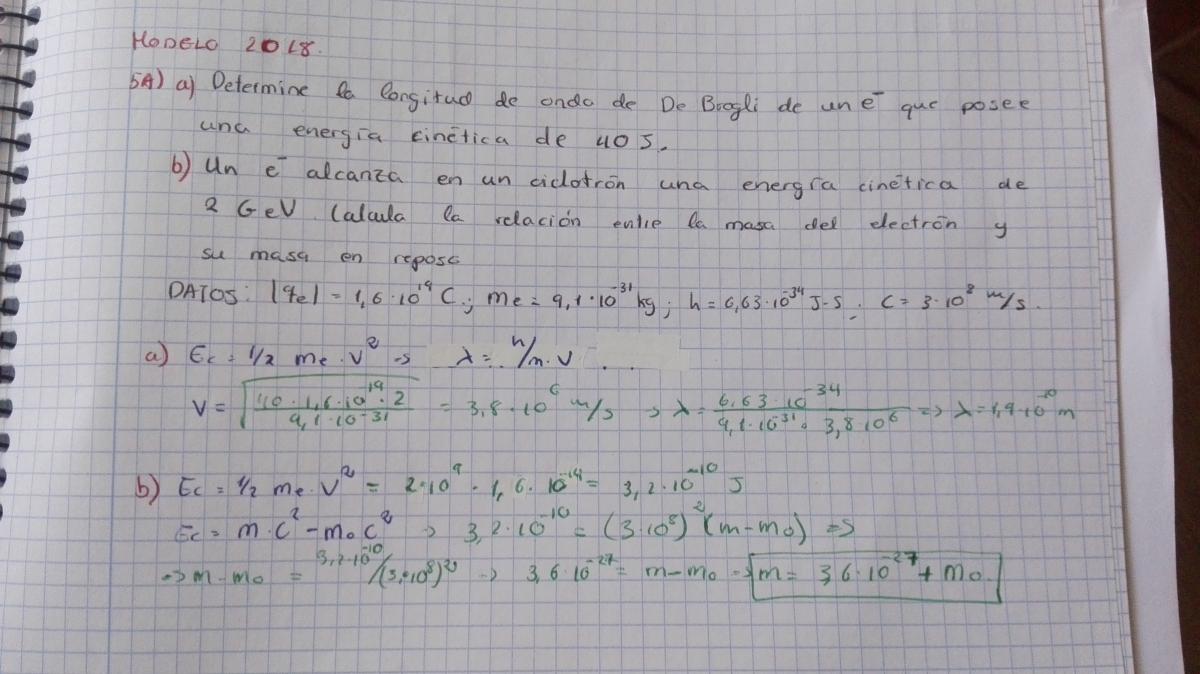 MODELO 2018.
5A) a) Determine la longitud de onda de De Brogli de un e⁻ que posee
una energía cinética de 40 J.
b) Un e⁻ alcanza en un ciclotrón una energía cinética de
2 GeV. Calcula la relación entre la masa del electrón y
su masa en reposo
DATOS: |qe| = 1,6·10¹⁹ C.; me = 9,1·10⁻³¹ kg; h = 6,63·10⁻³⁴ J·S; C = 3·10⁸ m/s.
a) Ec = 1/2 me·V² → λ = h/m·V
V = √(40·1,6·10⁻¹⁹·2 / 9,1·10⁻³¹) = 3,8·10⁶ m/s → λ = 6,63·10⁻³⁴ / 9,1·10⁻³¹·3,8·10⁶ => λ = 1,9·10⁻¹⁰ m
b) Ec = 1/2 me·V² = 2·10⁹ · 1,6·10⁻¹⁹ = 3,2·10⁻¹⁰ J
Ec = m·C² - m₀C² → 3,2·10⁻¹⁰ = (3·10⁸)² (m-m₀) =>
=> m-m₀ = 3,2·10⁻¹⁰/(3·10⁸)² → 3,6·10⁻²⁷ = m-m₀ → m = 3,6·10⁻²⁷ + m₀.